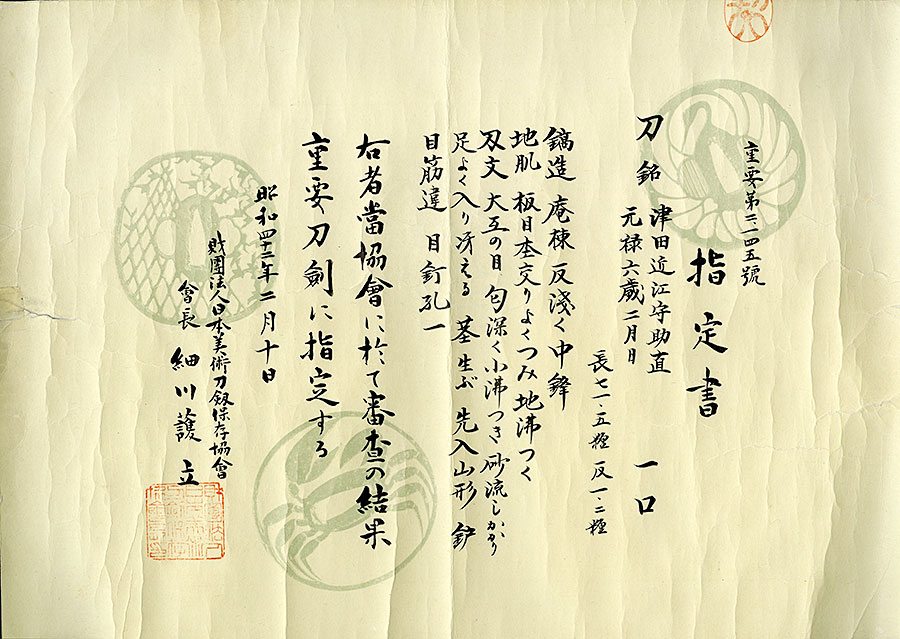 重要第三一四五號
指定書
刀 銘 津田近江守助直 一口
元禄六歳二月日
長七一・五糎 反一・二糎
鎬造 庵棟 反淺く中鋒
地肌 板目杢交りよくつみ地沸つく
刄文 大互の目 匂深く小沸つき砂流しかかり
足よく入り冴える 茎生ぶ 先入山形 鈩
目筋違 目釘孔一
右者當協會に於て審査の結果
重要刀劍に指定する
昭和四十二年二月十日
財團法人日本美術刀劔保存協會
會長 細川護立